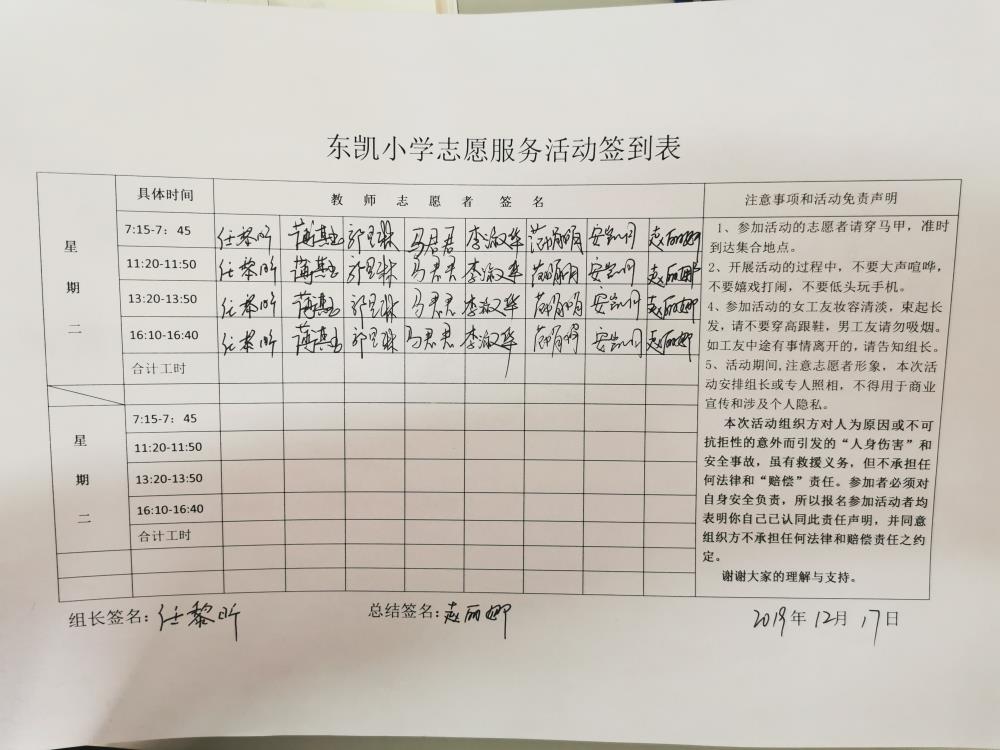 东凯小学志愿服务活动签到表
具体时间 教师志愿者签名 注意事项和活动免责声明
星期二
7:15-7：45 任黎昕 马君君 李淑华 安凯月 赵丽娜
11:20-11:50 任黎昕 马君君 李淑华 安凯月 赵丽娜
13:20-13:50 任黎昕 马君君 李淑华 安凯月 赵丽娜
16:10-16:40 任黎昕 马君君 李淑华 安凯月 赵丽娜
合计工时
星期二
7:15-7：45
11:20-11:50
13:20-13:50
16:10-16:40
合计工时
1、参加活动的志愿者请穿马甲，准时
到达集合地点。
2、开展活动的过程中，不要大声喧哗，
不要嬉戏打闹，不要低头玩手机。
4、参加活动的女工友妆容清淡，束起长
发，请不要穿高跟鞋，男工友请勿吸烟。
如工友中途有事情离开的，请告知组长。
5、活动期间,注意志愿者形象，本次活
动安排组长或专人照相，不得用于商业
宣传和涉及个人隐私。
本次活动组织方对人为原因或不可
抗拒性的意外而引发的“人身伤害”和
安全事故，虽有救援义务，但不承担任
何法律和“赔偿”责任。参加者必须对
自身安全负责，所以报名参加活动者均
表明你自己已认同此责任声明，并同意
组织方不承担任何法律和赔偿责任之约
定。
谢谢大家的理解与支持。
组长签名：任黎昕 总结签名：赵丽娜 2019年12月17日